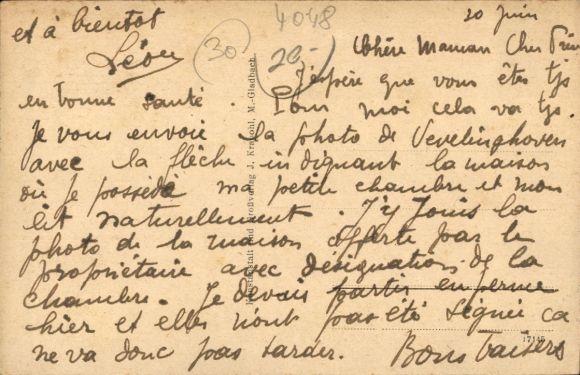 20 juin
Chère Maman Cher Père
J'espère que vous êtes tjs
en bonne santé. Pour moi cela va tjs.
Je vous envoie la photo de Vevelinghoven
avec la flêche indiquant la maison
où je possède ma petite chambre et mon
lit naturellement. J'y joins la
photo de la maison offerte par le
propriétaire avec désignations de la
chambre. Je devais partir en perme
hier et elles n'ont pas été signée ca
ne va donc pas tarder. Bons baisers
et à bientot
Léon
4048
30
20-
Kunstanstalt und Großverlag J. Krapohl, M.-Gladbach.
17145